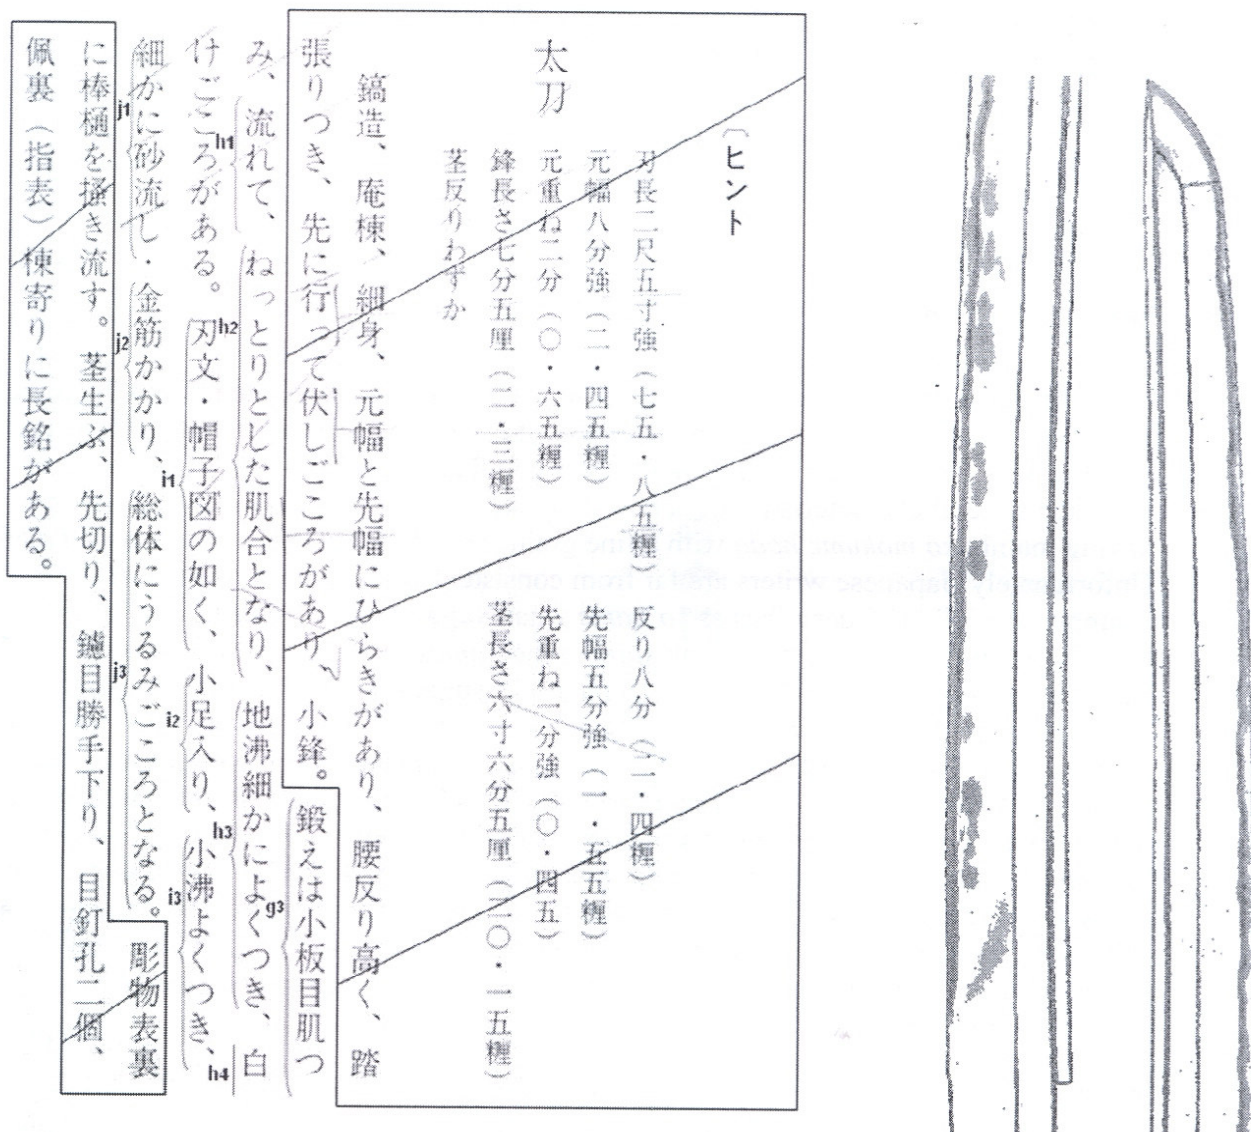 〔ヒント
太刀
刃長二尺五寸強（七五・八五糎）　反り八分（二・四糎）
元幅八分強（二・四五糎）　先幅五分強（一・五五糎）
元重ね二分（〇・六五糎）　先重ね一分強（〇・四五）
鋒長さ七分五厘（二・三糎）　茎長さ六寸六分五厘（二〇・一五糎）
茎反りわずか
鎬造、庵棟、細身、元幅と先幅にひらきがあり、腰反り高く、踏
張りつき、先に行って伏しごころがあり、小鋒。鍛えは小板目肌つ
g3
み、流れて、ねっとりとした肌合となり、地沸細かによくつき、白
h1
h2
h3
h4
けごころがある。刃文・帽子図の如く、小足入り、小沸よくつき、
i1
i2
i3
細かに砂流し・金筋かかり、総体にうるみごころとなる。彫物表裏
j1
j2
j3
に棒樋を掻き流す。茎生ぶ、先切り、鑢目勝手下り、目釘孔二個、
佩裏（指表）棟寄りに長銘がある。